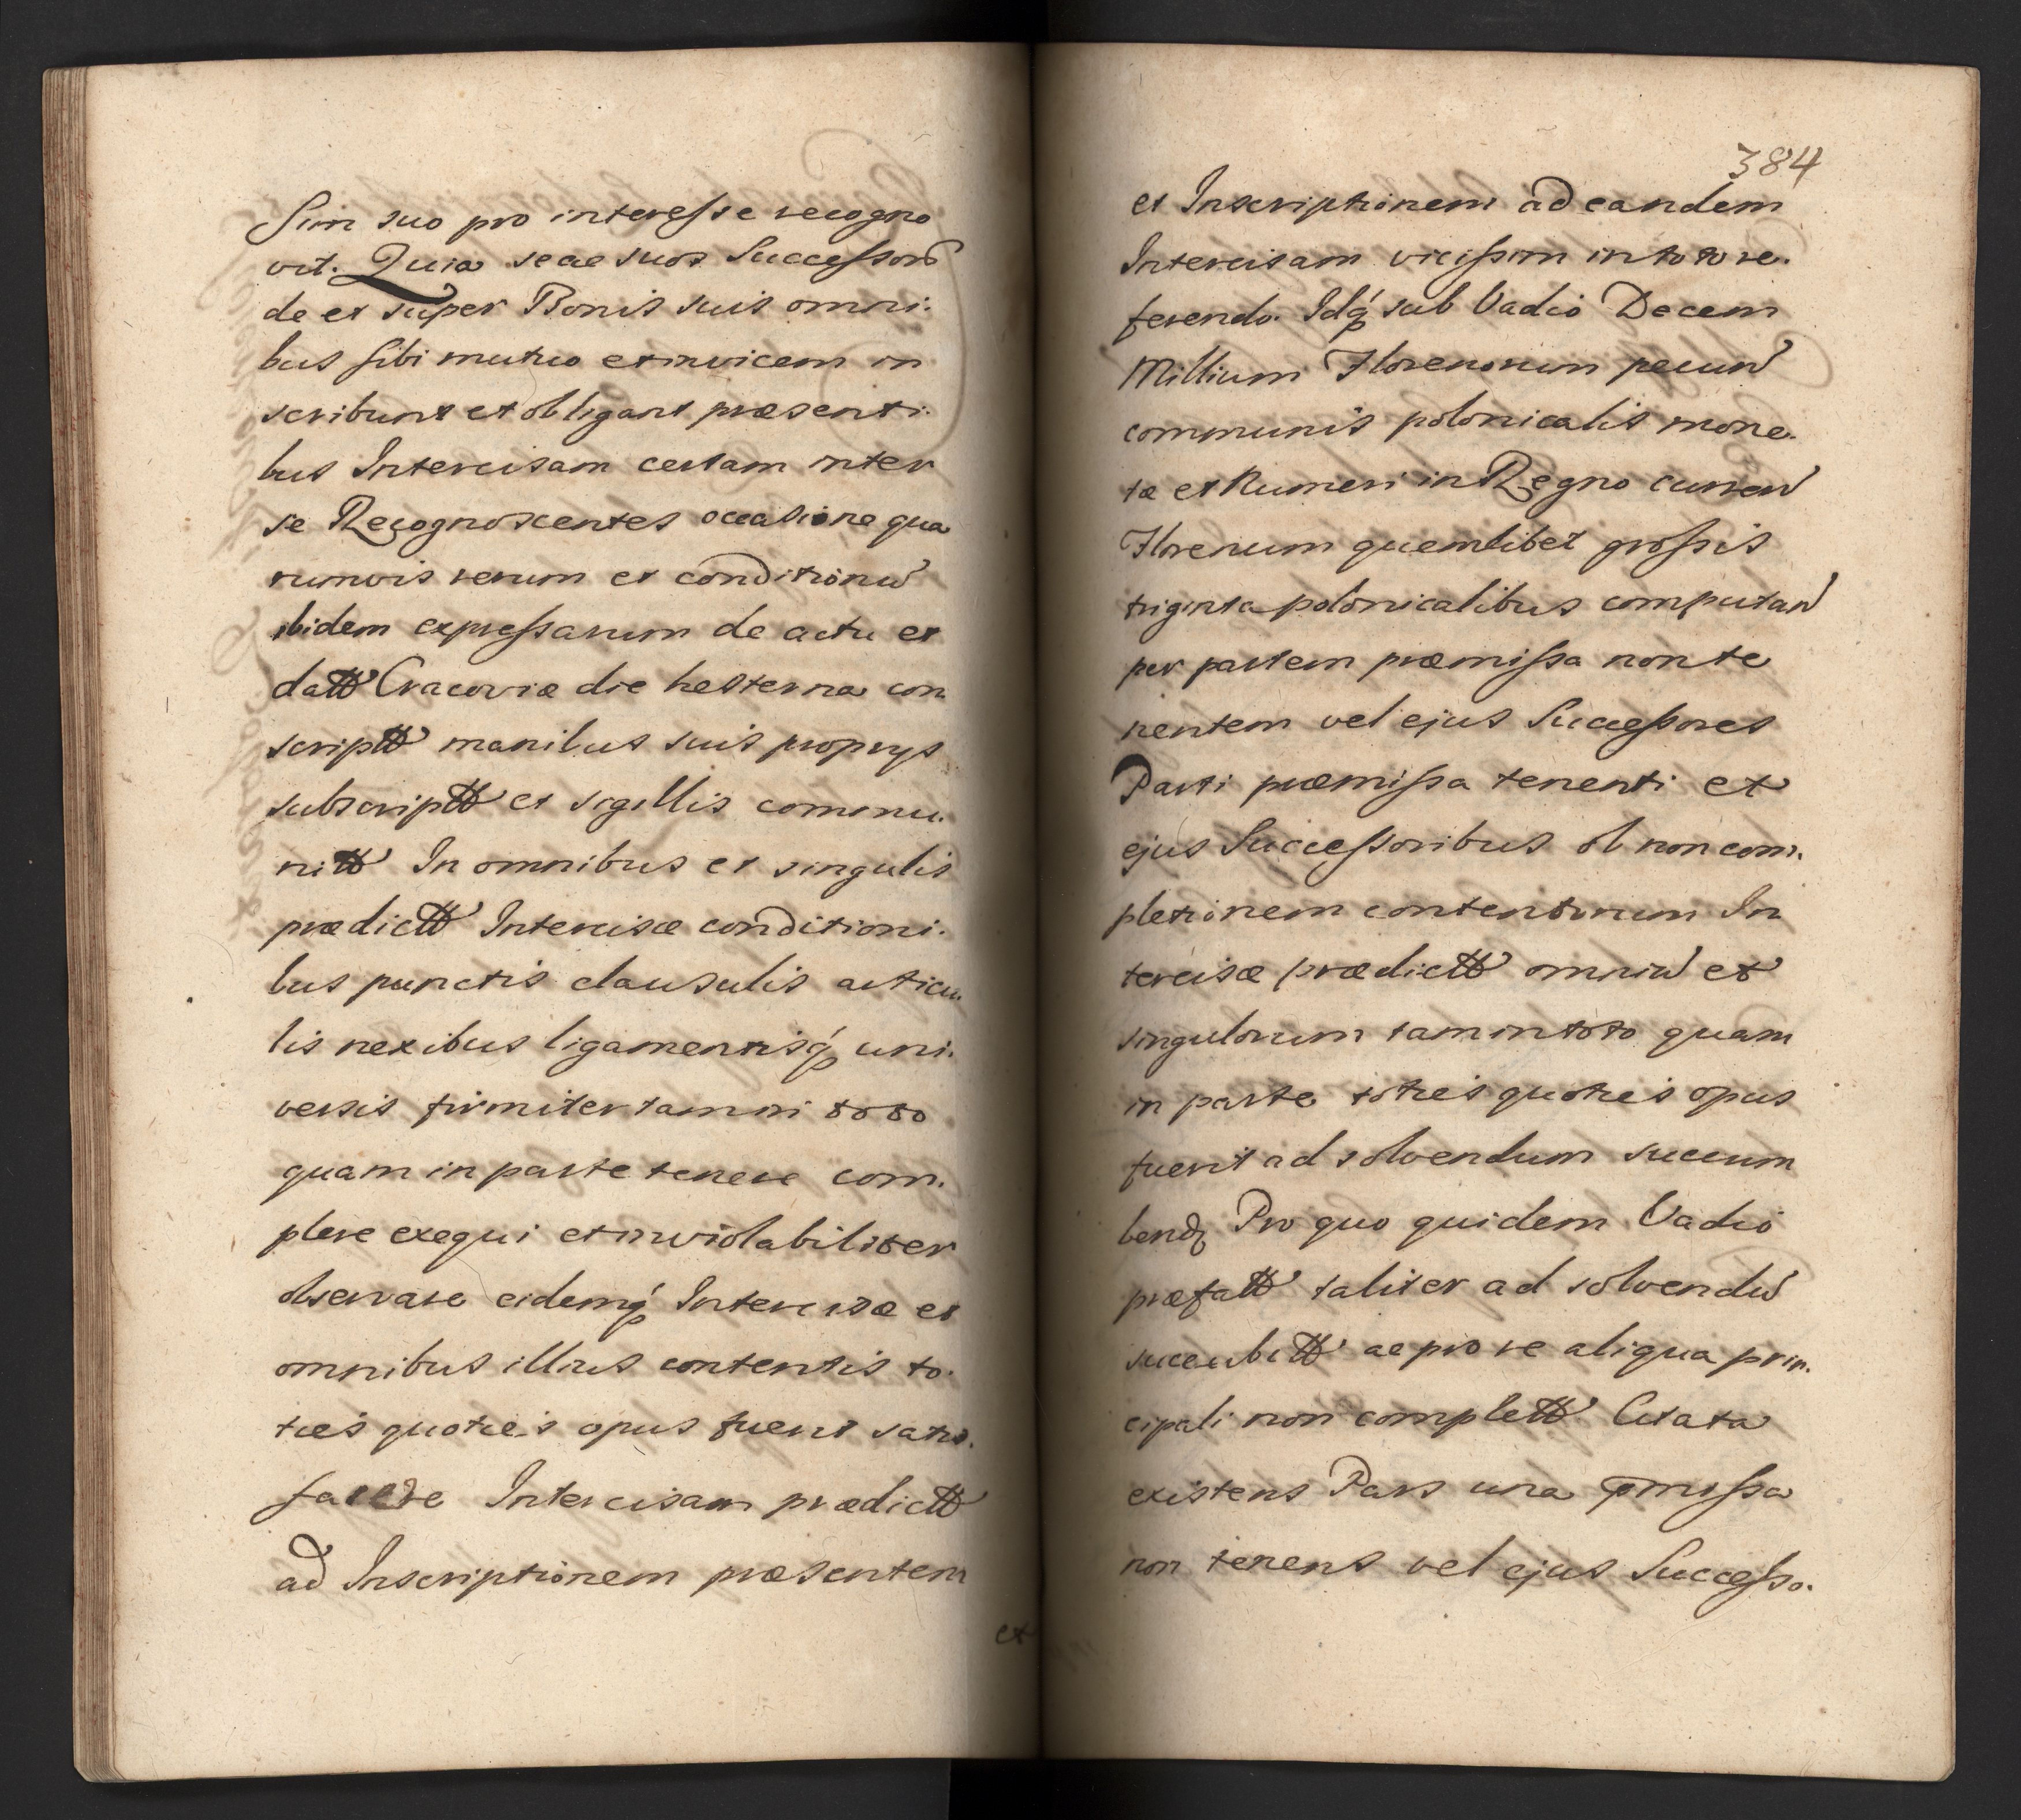 Sim suo pro interesse recogno
vit. Quia se ac suos Successores
de et super Bonis suis omni.
bus sibi mutuo et invicem in
scribunt et obligant præsenti.
bus Intercisam certam inter
se Recognoscentes occasione qua
rumvis rerum et conditionu
ibidem expressarum de actu et
datt Cracoviæ die hesterna con
scriptt manibus suis proprys
subscriptt et sigillis commu.
nitt In omnibus et singulis
prædictt Intercisæ conditioni.
bus punctis clausulis articu
lis nexibus ligamentisq uni.
versis firmiter tam in toto
quam in parte tenere com.
plere exequi et inviolabiliter
observare eidemq Intercisæ et
omnibus illius contentis to.
ties quoties opus fuerit satis.
facere Intercisam prædictt
ad Inscriptionem præsentem
et
384
et Inscriptionem ad eandem
Intercisam vicissim in toto re.
ferendo. Idq sub Vadio Decem
Millium Florenorum pecun
communis polonicalis mone.
tæ et Numeri in Regno curren
Florenum quemlibet grossis
triginta polonicalibus computan
per partem præmissa non te
nentem vel ejus Successores
Parti præmissa tenenti et
ejus Successoribus ob non com.
pletionem contentorum In
tercisæ prædictt omniu et
singulorum tam in toto quam
in parte toties quoties opus
fuerit ad solvendum succum
bend Pro quo quidem Vadio
præfatt taliter ad solvendu
succubitt ac pro re aliqua prin.
cipali non complett Citata
existens Pars una pmissa
non tenens vel ejus Successo.